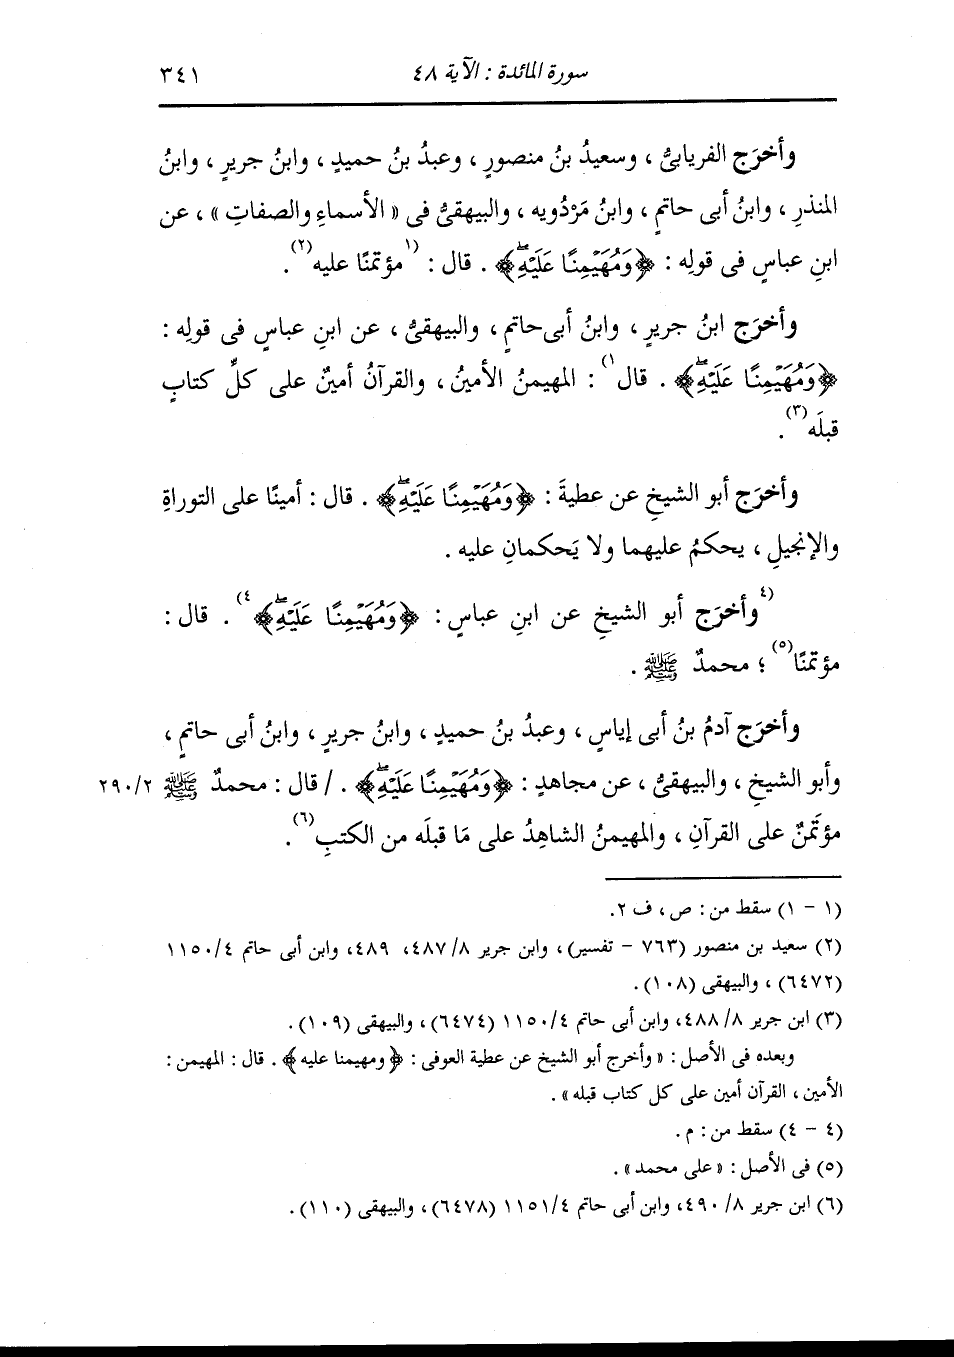 سورة المائدة : الآية ٤٨
٣٤١
وأخرَج الفريابىُّ ، وسعيدُ بنُ منصورٍ ، وعبدُ بنُ حميدٍ ، وابنُ جريرٍ ، وابنُ
المنذرِ ، وابنُ أبى حاتمٍ ، وابنُ مَرْدُويه ، والبيهقىُّ فى « الأسماءِ والصفاتِ » ، عن
ابنِ عباسٍ فى قولِه : ﴿وَمُهَيْمِنًا عَلَيْهِۖ﴾ . قال : (١ مؤتمَنًا عليه(٢) .
وأخرَج ابنُ جريرٍ ، وابنُ أبى حاتمٍ ، والبيهقىُّ ، عن ابنِ عباسٍ فى قولِه :
﴿وَمُهَيْمِنًا عَلَيْهِۖ﴾ . قال ١) : المهيمنُ الأمينُ ، والقرآنُ أمينٌ على كلِّ كتابٍ
قبلَه(٣) .
وأخرَج أبو الشيخِ عن عطيةَ : ﴿وَمُهَيْمِنًا عَلَيْهِۖ﴾ . قال : أمينًا على التوراةِ
والإنجيلِ ، يحكمُ عليهما ولا يَحكمانِ عليه .
(٤ وأخرَج أبو الشيخِ عن ابنِ عباسٍ : ﴿وَمُهَيْمِنًا عَلَيْهِۖ﴾ ٤) . قال :
مؤتمنًا(٥) ؛ محمدٌ ﷺ .
وأخرَج آدمُ بنُ أبى إياسٍ ، وعبدُ بنُ حميدٍ ، وابنُ جريرٍ ، وابنُ أبى حاتمٍ ،
وأبو الشيخِ ، والبيهقىُّ ، عن مجاهدٍ : ﴿وَمُهَيْمِنًا عَلَيْهِۖ﴾ . / قال : محمدٌ ﷺ ٢٩٠/٢
مؤتَمنٌ على القرآنِ ، والمهيمنُ الشاهِدُ على مَا قبلَه من الكتبِ(٦) .
(١ - ١) سقط من : ص ، ف ٢.
(٢) سعيد بن منصور (٧٦٣ - تفسير) ، وابن جرير ٨/ ٤٨٧، ٤٨٩، وابن أبى حاتم ١١٥٠/٤
(٦٤٧٢) ، والبيهقى (١٠٨) .
(٣) ابن جرير ٨/ ٤٨٨، وابن أبى حاتم ١١٥٠/٤ (٦٤٧٤) ، والبيهقى (١٠٩) .
وبعده فى الأصل : « وأخرج أبو الشيخ عن عطية العوفى : ﴿ومهيمنا عليه﴾ . قال : المهيمن :
الأمين ، القرآن أمين على كل كتاب قبله » .
(٤ - ٤) سقط من : م .
(٥) فى الأصل : « على محمد » .
(٦) ابن جرير ٨/ ٤٩٠، وابن أبى حاتم ١١٥١/٤ (٦٤٧٨) ، والبيهقى (١١٠) .